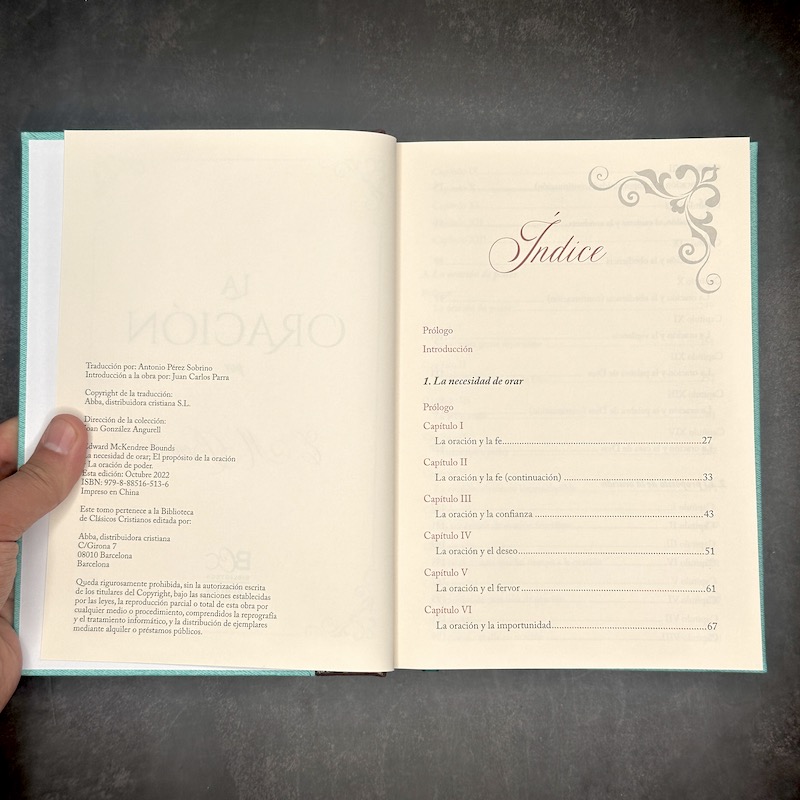 Traducción por: Antonio Pérez Sobrino
Introducción a la obra por: Juan Carlos Parra
Copyright de la traducción:
Abba, distribuidora cristiana S.L.
Dirección de la colección:
Joan González Angurell
Edward McKendree Bounds
La necesidad de orar; El propósito de la oración
y La oración de poder.
Esta edición: Octubre 2022
ISBN: 979-8-88516-513-6
Impreso en China
Este tomo pertenece a la Biblioteca
de Clásicos Cristianos editada por:
Abba, distribuidora cristiana
C/Girona 7
08010 Barcelona
Barcelona
Queda rigurosamente prohibida, sin la autorización escrita
de los titulares del Copyright, bajo las sanciones establecidas
por las leyes, la reproducción parcial o total de esta obra por
cualquier medio o procedimiento, comprendidos la reprografía
y el tratamiento informático, y la distribución de ejemplares
mediante alquiler o préstamos públicos.
Índice
Prólogo
Introducción
1. La necesidad de orar
Prólogo
Capítulo I
La oración y la fe...27
Capítulo II
La oración y la fe (continuación) ...33
Capítulo III
La oración y la confianza ...43
Capítulo IV
La oración y el deseo...51
Capítulo V
La oración y el fervor...61
Capítulo VI
La oración y la importunidad...67
LA
ORACIÓN